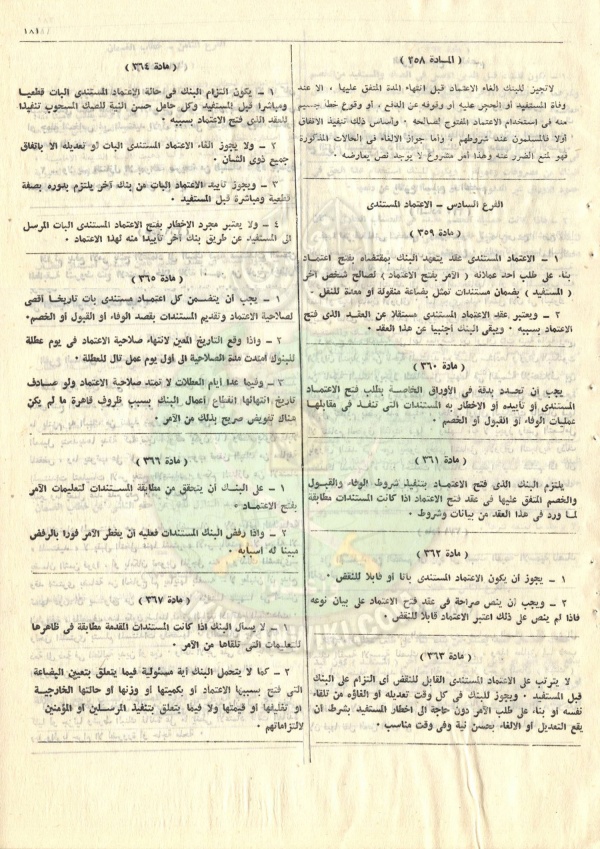 ١٨١
( المسادة ٣٥٨ )
لاتجيز للبنك الغاء الاعتماد قبل انتهاء المدة المتفق عليها ، الا عند
وفاة المستفيد أو الحجر عليه أو وقوفه عن الدفع ، أو وقوع خطأ جسيم
منه فى استخدام الاعتماد المفتوح لصالحه . وأساس ذلك تنفيذ الاتفاق
أولا فالمسلمون عند شروطهم . وأما جواز الالغاء فى الحالات المذكورة
فهو لمنع الضرر عنه وهذا أمر مشروع لا يوجد نص يعارضه .
الفرع السادس – الاعتماد المستندى
( مادة ٣٥٩ )
١ – الاعتماد المستندى عقد يتعهد البنك بمقتضاه بفتح اعتماد
بناء على طلب أحد عملائه ( الآمر بفتح الاعتماد ) لصالح شخص آخر
( المستفيد ) بضمان مستندات تمثل بضاعة منقولة أو معدة للنقل .
٢ – ويعتبر عقد الاعتماد المستندى مستقلا عن العقد الذى فتح
الاعتماد بسببه . ويبقى البنك أجنبيا عن هذا العقد .
( مادة ٣٦٠ )
يجب أن تحدد بدقة فى الأوراق الخاصة بطلب فتح الاعتماد
المستندى أو تأييده أو الاخطار به المستندات التى تنفذ فى مقابلها
عمليات الوفاء أو القبول أو الخصم .
( مادة ٣٦١ )
يلتزم البنك الذى فتح الاعتماد بتنفيذ شروط الوفاء والقبول
والخصم المتفق عليها فى عقد فتح الاعتماد اذا كانت المستندات مطابقة
لما ورد فى هذا العقد من بيانات وشروط .
( مادة ٣٦٢ )
١ – يجوز أن يكون الاعتماد المستندى باتا أو قابلا للنقض .
٢ – ويجب أن ينص صراحة فى عقد فتح الاعتماد على بيان نوعه
فاذا لم ينص على ذلك اعتبر الاعتماد قابلا للنقض .
( مادة ٣٦٣ )
لا يترتب على الاعتماد المستندى القابل للنقض أى التزام على البنك
قبل المستفيد . ويجوز للبنك فى كل وقت تعديله أو الغاؤه من تلقاء
نفسه أو بناء على طلب الآمر دون حاجة الى اخطار المستفيد بشرط أن
يقع التعديل أو الالغاء بحسن نية وفى وقت مناسب .
( مادة ٣٦٤ )
١ – يكون التزام البنك فى حالة الاعتماد المستندى البات قطعيا
ومباشرا قبل المستفيد وكل حامل حسن النية للصك المسحوب تنفيذا
للعقد الذى فتح الاعتماد بسببه .
٢ – ولا يجوز الغاء الاعتماد المستندى البات أو تعديله الا باتفاق
جميع ذوى الشأن .
٣ – ويجوز تأييد الاعتماد البات من بنك آخر يلتزم بدوره بصفة
قطعية ومباشرة قبل المستفيد .
٤ – ولا يعتبر مجرد الاخطار بفتح الاعتماد المستندى البات المرسل
الى المستفيد عن طريق بنك آخر تأييدا منه لهذا الاعتماد .
( مادة ٣٦٥ )
١ – يجب أن يتضمن كل اعتماد مستندى بات تاريخا أقصى
لصلاحية الاعتماد وتقديم المستندات بقصد الوفاء أو القبول أو الخصم.
٢ – واذا وقع التاريخ المعين لانتهاء صلاحية الاعتماد فى يوم عطلة
للبنوك امتدت مدة الصلاحية الى أول يوم عمل تال للعطلة .
٣ – وفيما عدا أيام العطلات لا تمتد صلاحية الاعتماد ولو صادف
تاريخ انتهائها انقطاع أعمال البنك بسبب ظروف قاهرة ما لم يكن
هناك تفويض صريح بذلك من الآمر .
( مادة ٣٦٦ )
١ – على البنك أن يتحقق من مطابقة المستندات لتعليمات الآمر
بفتح الاعتماد .
٢ – واذا رفض البنك المستندات فعليه أن يخطر الآمر فورا بالرفض
مبينا له أسبابه .
( مادة ٣٦٧ )
١ – لا يسأل البنك اذا كانت المستندات المقدمة مطابقة فى ظاهرها
للتعليمات التى تلقاها من الآمر .
٢ – كما لا يتحمل البنك أية مسئولية فيما يتعلق بتعيين البضاعة
التى فتح بسببها الاعتماد أو بكميتها أو وزنها أو حالتها الخارجية
أو تغليفها أو قيمتها ولا فيما يتعلق بتنفيذ المرسلين أو المؤمنين
لالتزاماتهم .